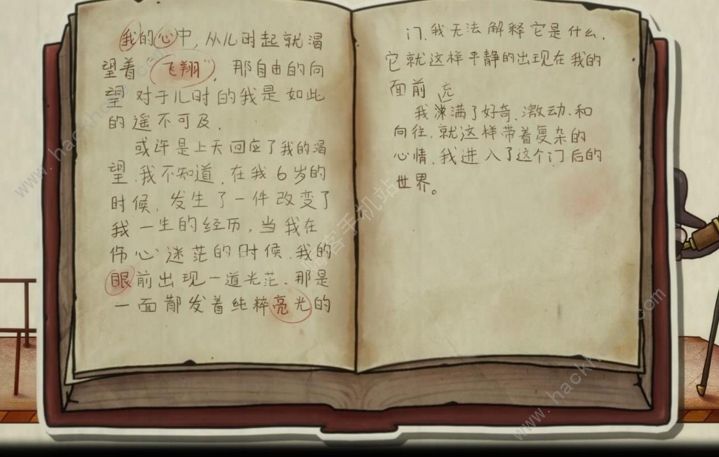 我的心中,从儿时起就渴
望着"飞翔",那自由的向
望对于儿时的我是如此
的遥不可及.
或许是上天回应了我的渴
望.我不知道,在我6岁的
时候,发生了一件改变了
我一生的经历,当我在
伤心迷茫的时候,我的
眼前出现一道光茫.那是
一面散发着纯粹亮光的
门.我无法解释它是什么,
它就这样平静的出现在我的
面前
我满了好奇、激动、和
向往.就这样带着复杂的
心情,我进入了这个门后的
世界。